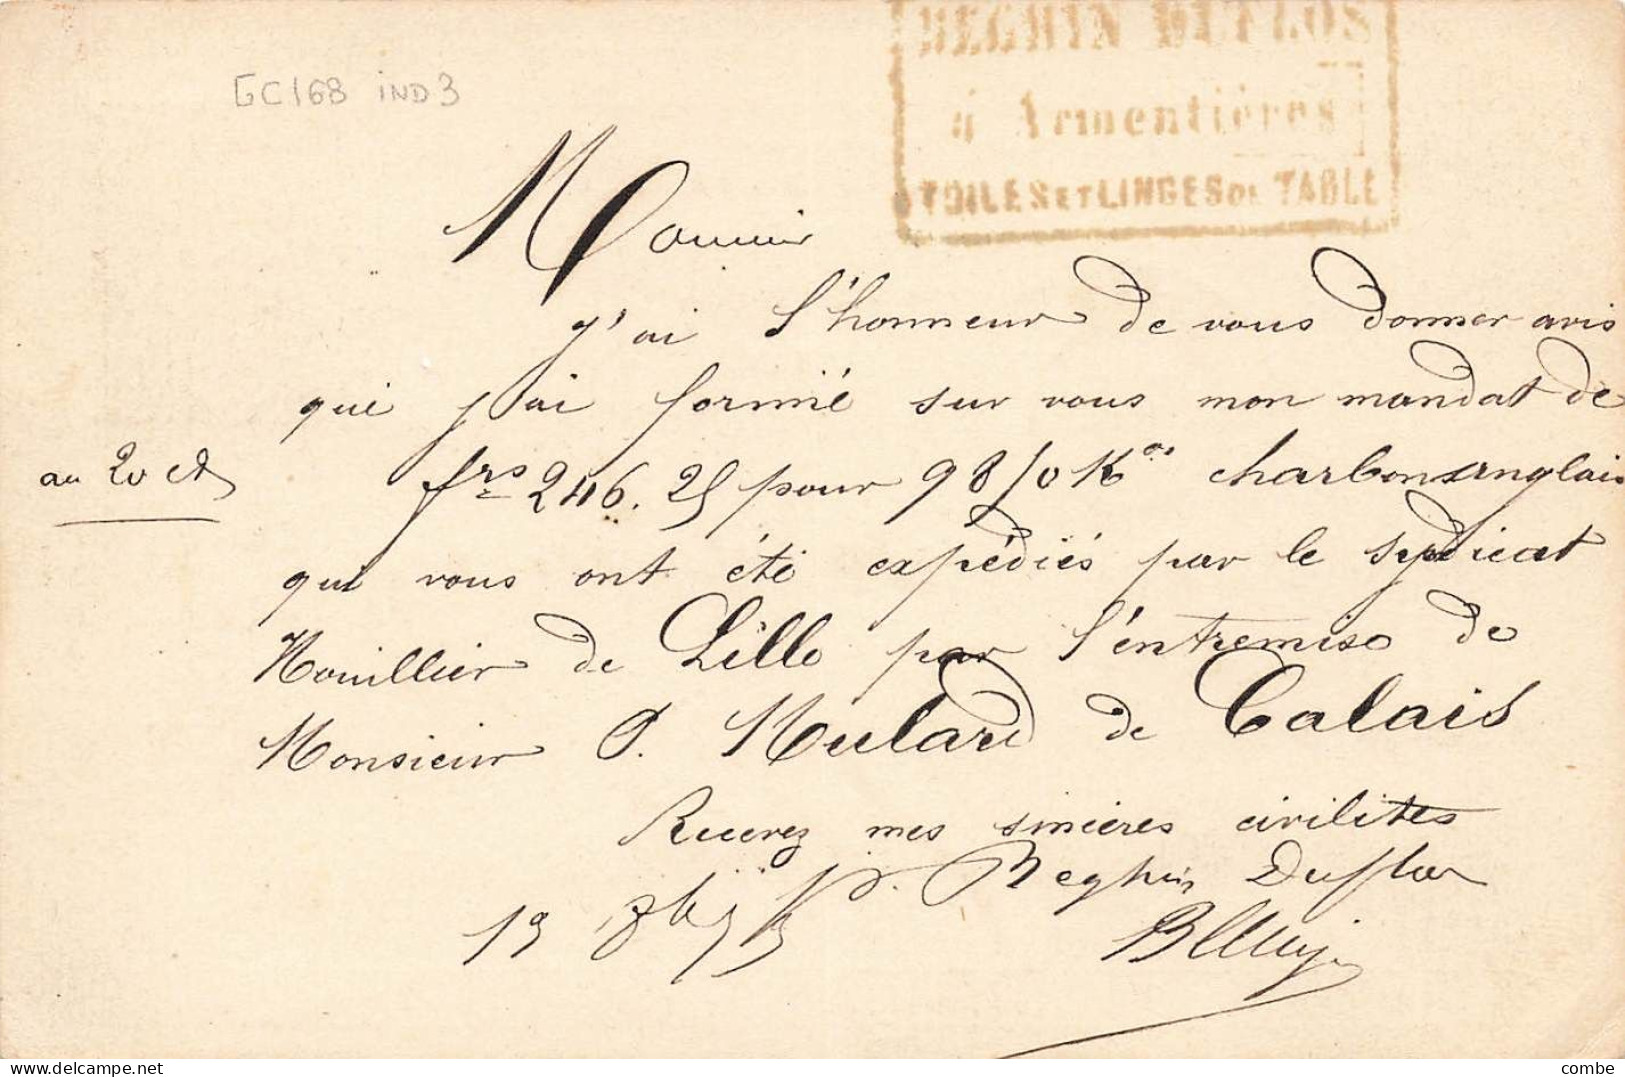 BEGHIN DUFLOS
à Armentières
TOILES ET LINGES DE TABLE
GC168 IND3
Monsieur
J'ai l'honneur de vous donner avis
que j'ai formé sur vous mon mandat de
au 20 ct
frs 246.25 pour 9850 Kos charbons anglais
qui vous ont été expédiés par le syndicat
Houillier de Lille par l'entremise de
Monsieur P. Mulard de Calais
Recevez mes sincères civilités
P. Beghin Duflos
13 8bre 73
delcampe.net
combe